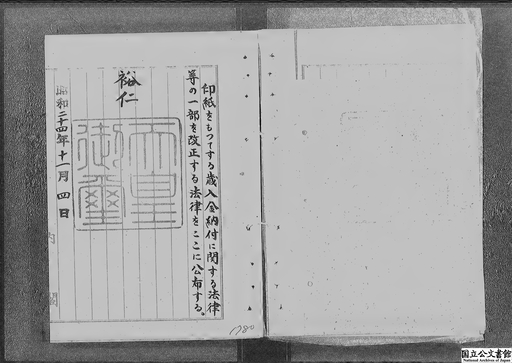 印紙をもつてする歳入金納付に関する法律
等の一部を改正する法律をここに公布する。
裕仁
天皇
御璽
昭和二十四年十一月四日
内閣
1780
国立公文書館
National Archives of Japan